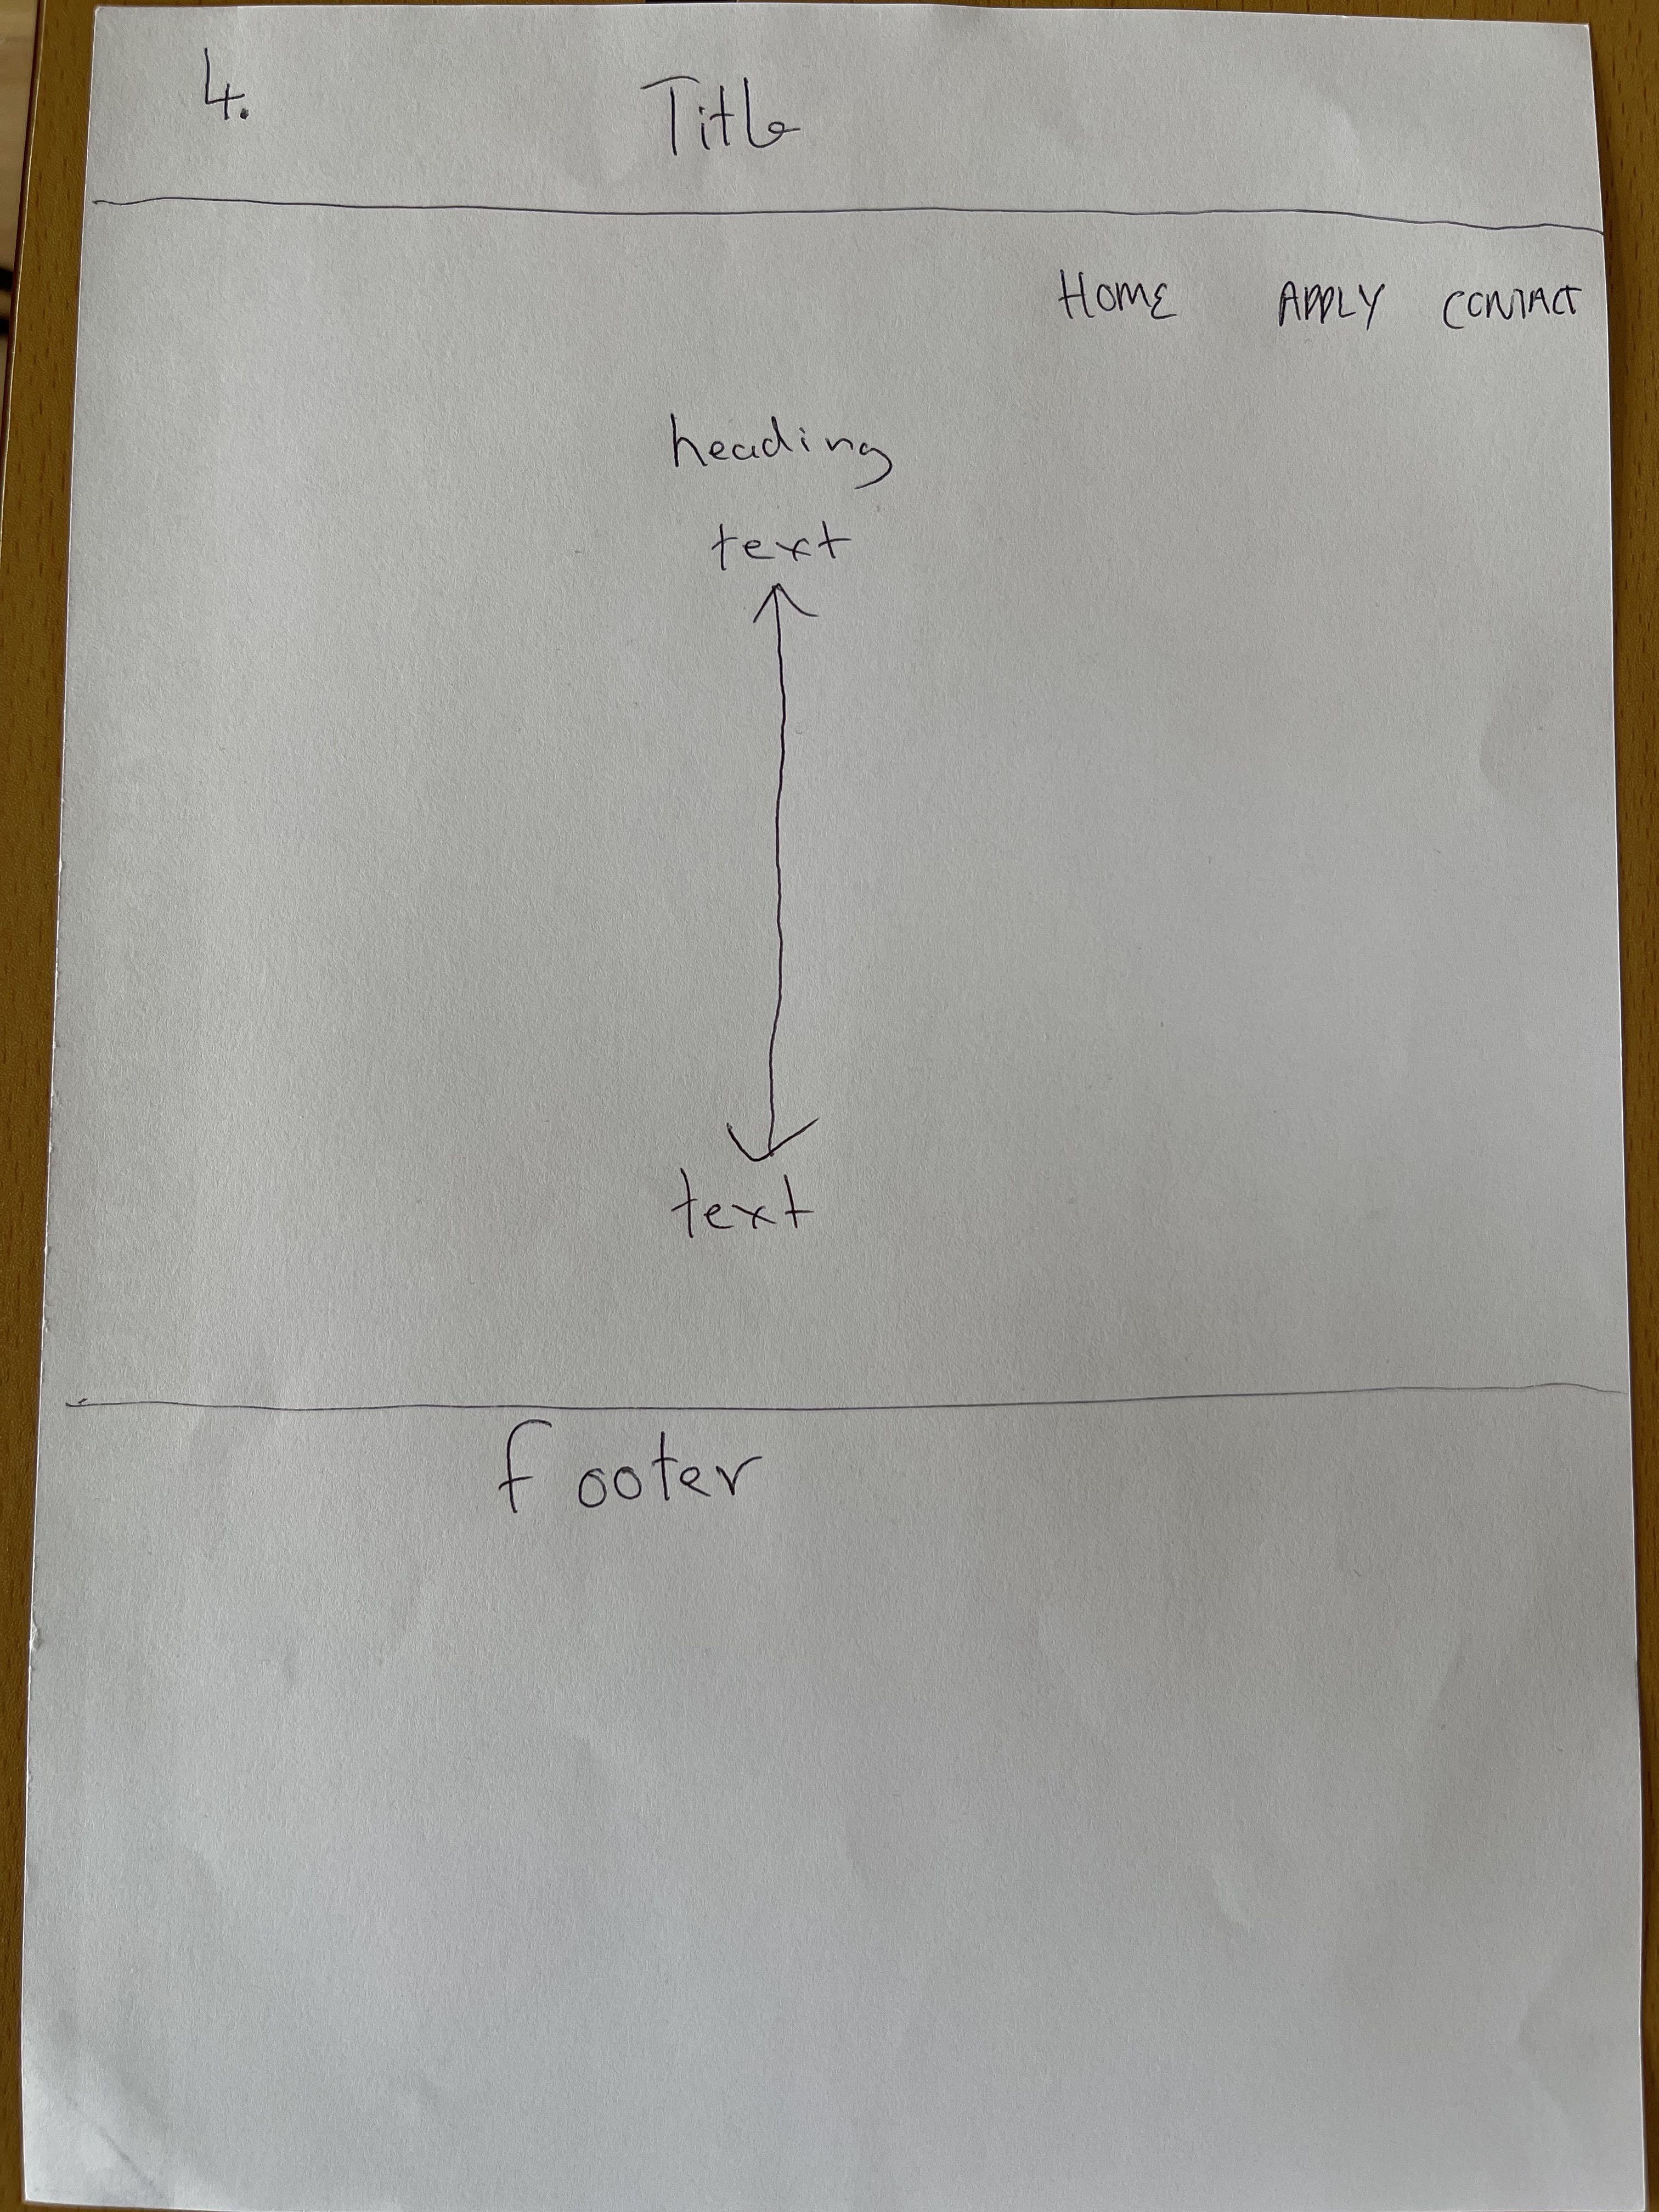 4. Title
HOME APPLY CONTACT
heading
text
text
footer